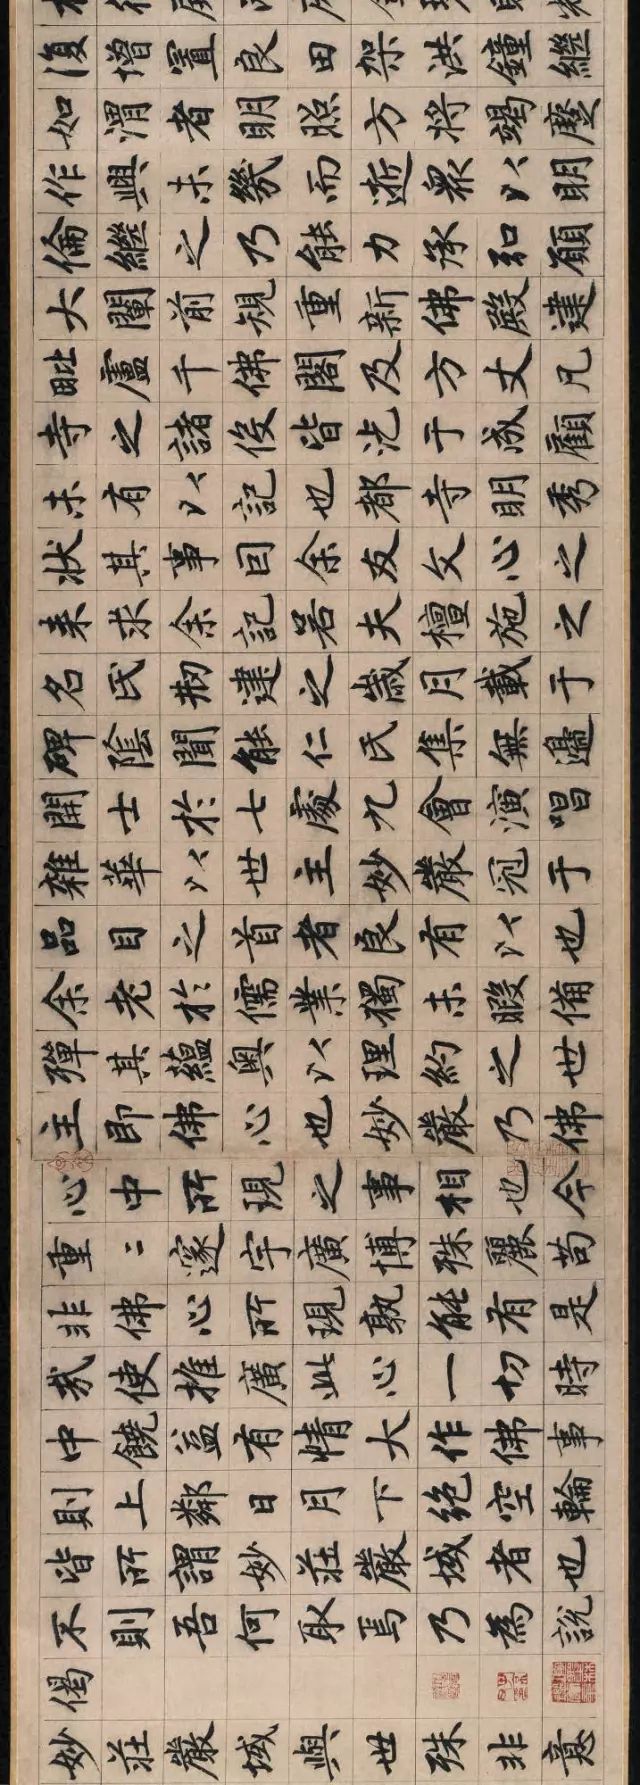 復增置良田架洪鐘繼
如渭者明照方將竭麽
作興未幾而逝衆以明
倫繼之乃能力承和願
大闡前規重新佛殿建
毗盧千佛閣及方丈凡
寺之諸役皆汔于成顧
未有以記也都寺明秀
狀其事囙余友文心之
来求余記若夫檀施之
名氏刱建之歲月載于
碑陰聞能仁氏集無邊
開士於七處九會演唱
雜華以世主妙嚴冠于
品目之首者良有以也
余老於儒業獨未暇備
殫其蘊奧以理約之世
主即佛心也妙嚴乃佛
心中所現之事相也今
重〻邃宇廣博殊麗苟
非佛心所現孰能有是
哉使推廣此心一切時
中饒益有情大作佛事
則上鄰日月下絕空輪
皆所謂妙莊嚴域者也
不則吾何取焉乃為說
偈
妙莊嚴域與世殊非意